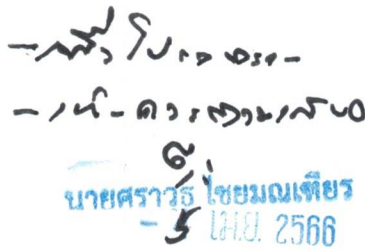 - เพื่อโปรดทราบ -
- เห็นควรตามเสนอ
นายศราวุธ ไชยมณเฑียร
- 5 เม.ย. 2566